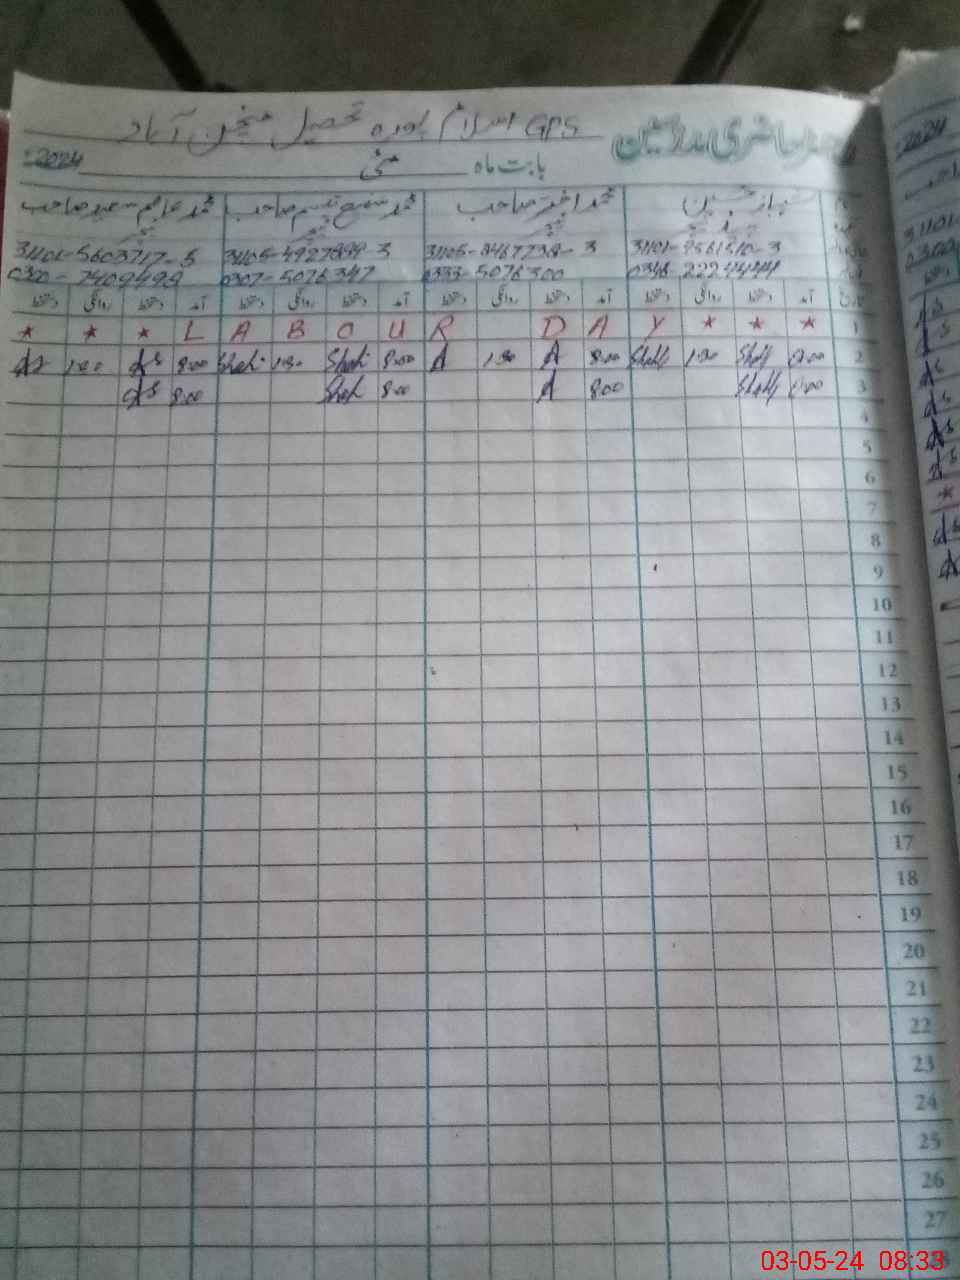 رجسٹر حاضری مدرسین GPS اسلام پورہ تحصیل منچن آباد
بابت ماہ مئی 2024
شہباز حسین محمد اختر صاحب محمد سمیع صاحب محمد عالم سعید صاحب
31101-5603717-5 31105-4927899-3 31105-8467738-3 31101-9561510-3
0300-7409499 0307-5076347 0333-5076300 0348-2224444
تاریخ آمد دستخط روانگی دستخط آمد دستخط روانگی دستخط آمد دستخط روانگی دستخط آمد دستخط روانگی دستخط
* * * L A B O U R D A Y * * * 1
1.30 8.00 Shah 1.30 Shah 8.00 A 1.30 A 8.00 1.30 8.00 2
8.00 Shah 8.00 A 8.00 8.00 3
4
5
6
7
8
9
10
11
12
13
14
15
16
17
18
19
20
21
22
23
24
25
26
27
28
03-05-24 08:33